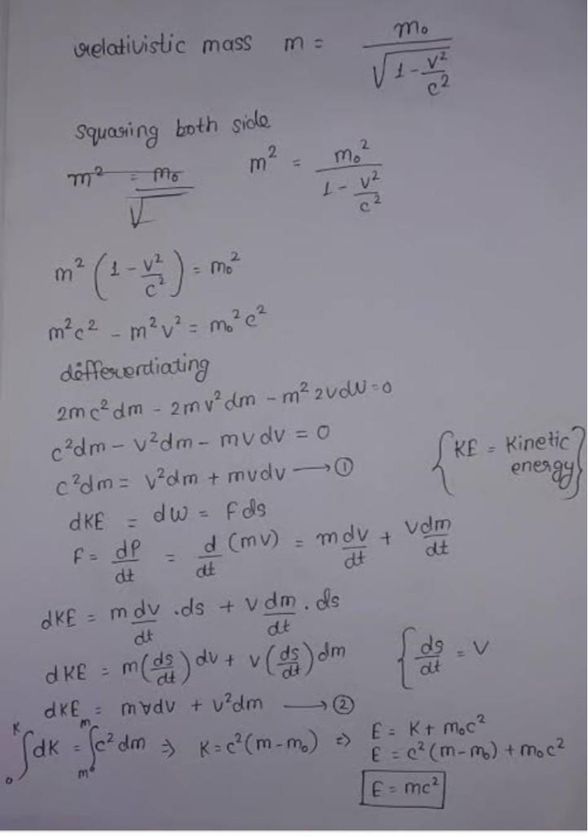 relativistic mass m = m₀ / √(1 - v²/c²)
squaring both side
m² = m₀ / √ m² = m₀² / (1 - v²/c²)
m² (1 - v²/c²) = m₀²
m²c² - m²v² = m₀²c²
differentiating
2mc²dm - 2mv²dm - m²2vdv = 0
c²dm - v²dm - mvdv = 0
c²dm = v²dm + mvdv → ①
{KE = Kinetic energy}
dKE = dW = Fds
F = dP/dt = d/dt (mv) = m dv/dt + v dm/dt
dKE = m dv/dt . ds + v dm/dt . ds
dKE = m(ds/dt) dv + v(ds/dt) dm {ds/dt = v
dKE = mvdv + v²dm → ②
∫₀ᴷ dK = ∫ₘ₀ᵐ c²dm ⇒ K = c²(m - m₀) ⇒ E = K + m₀c²
E = c²(m - m₀) + m₀c²
E = mc²